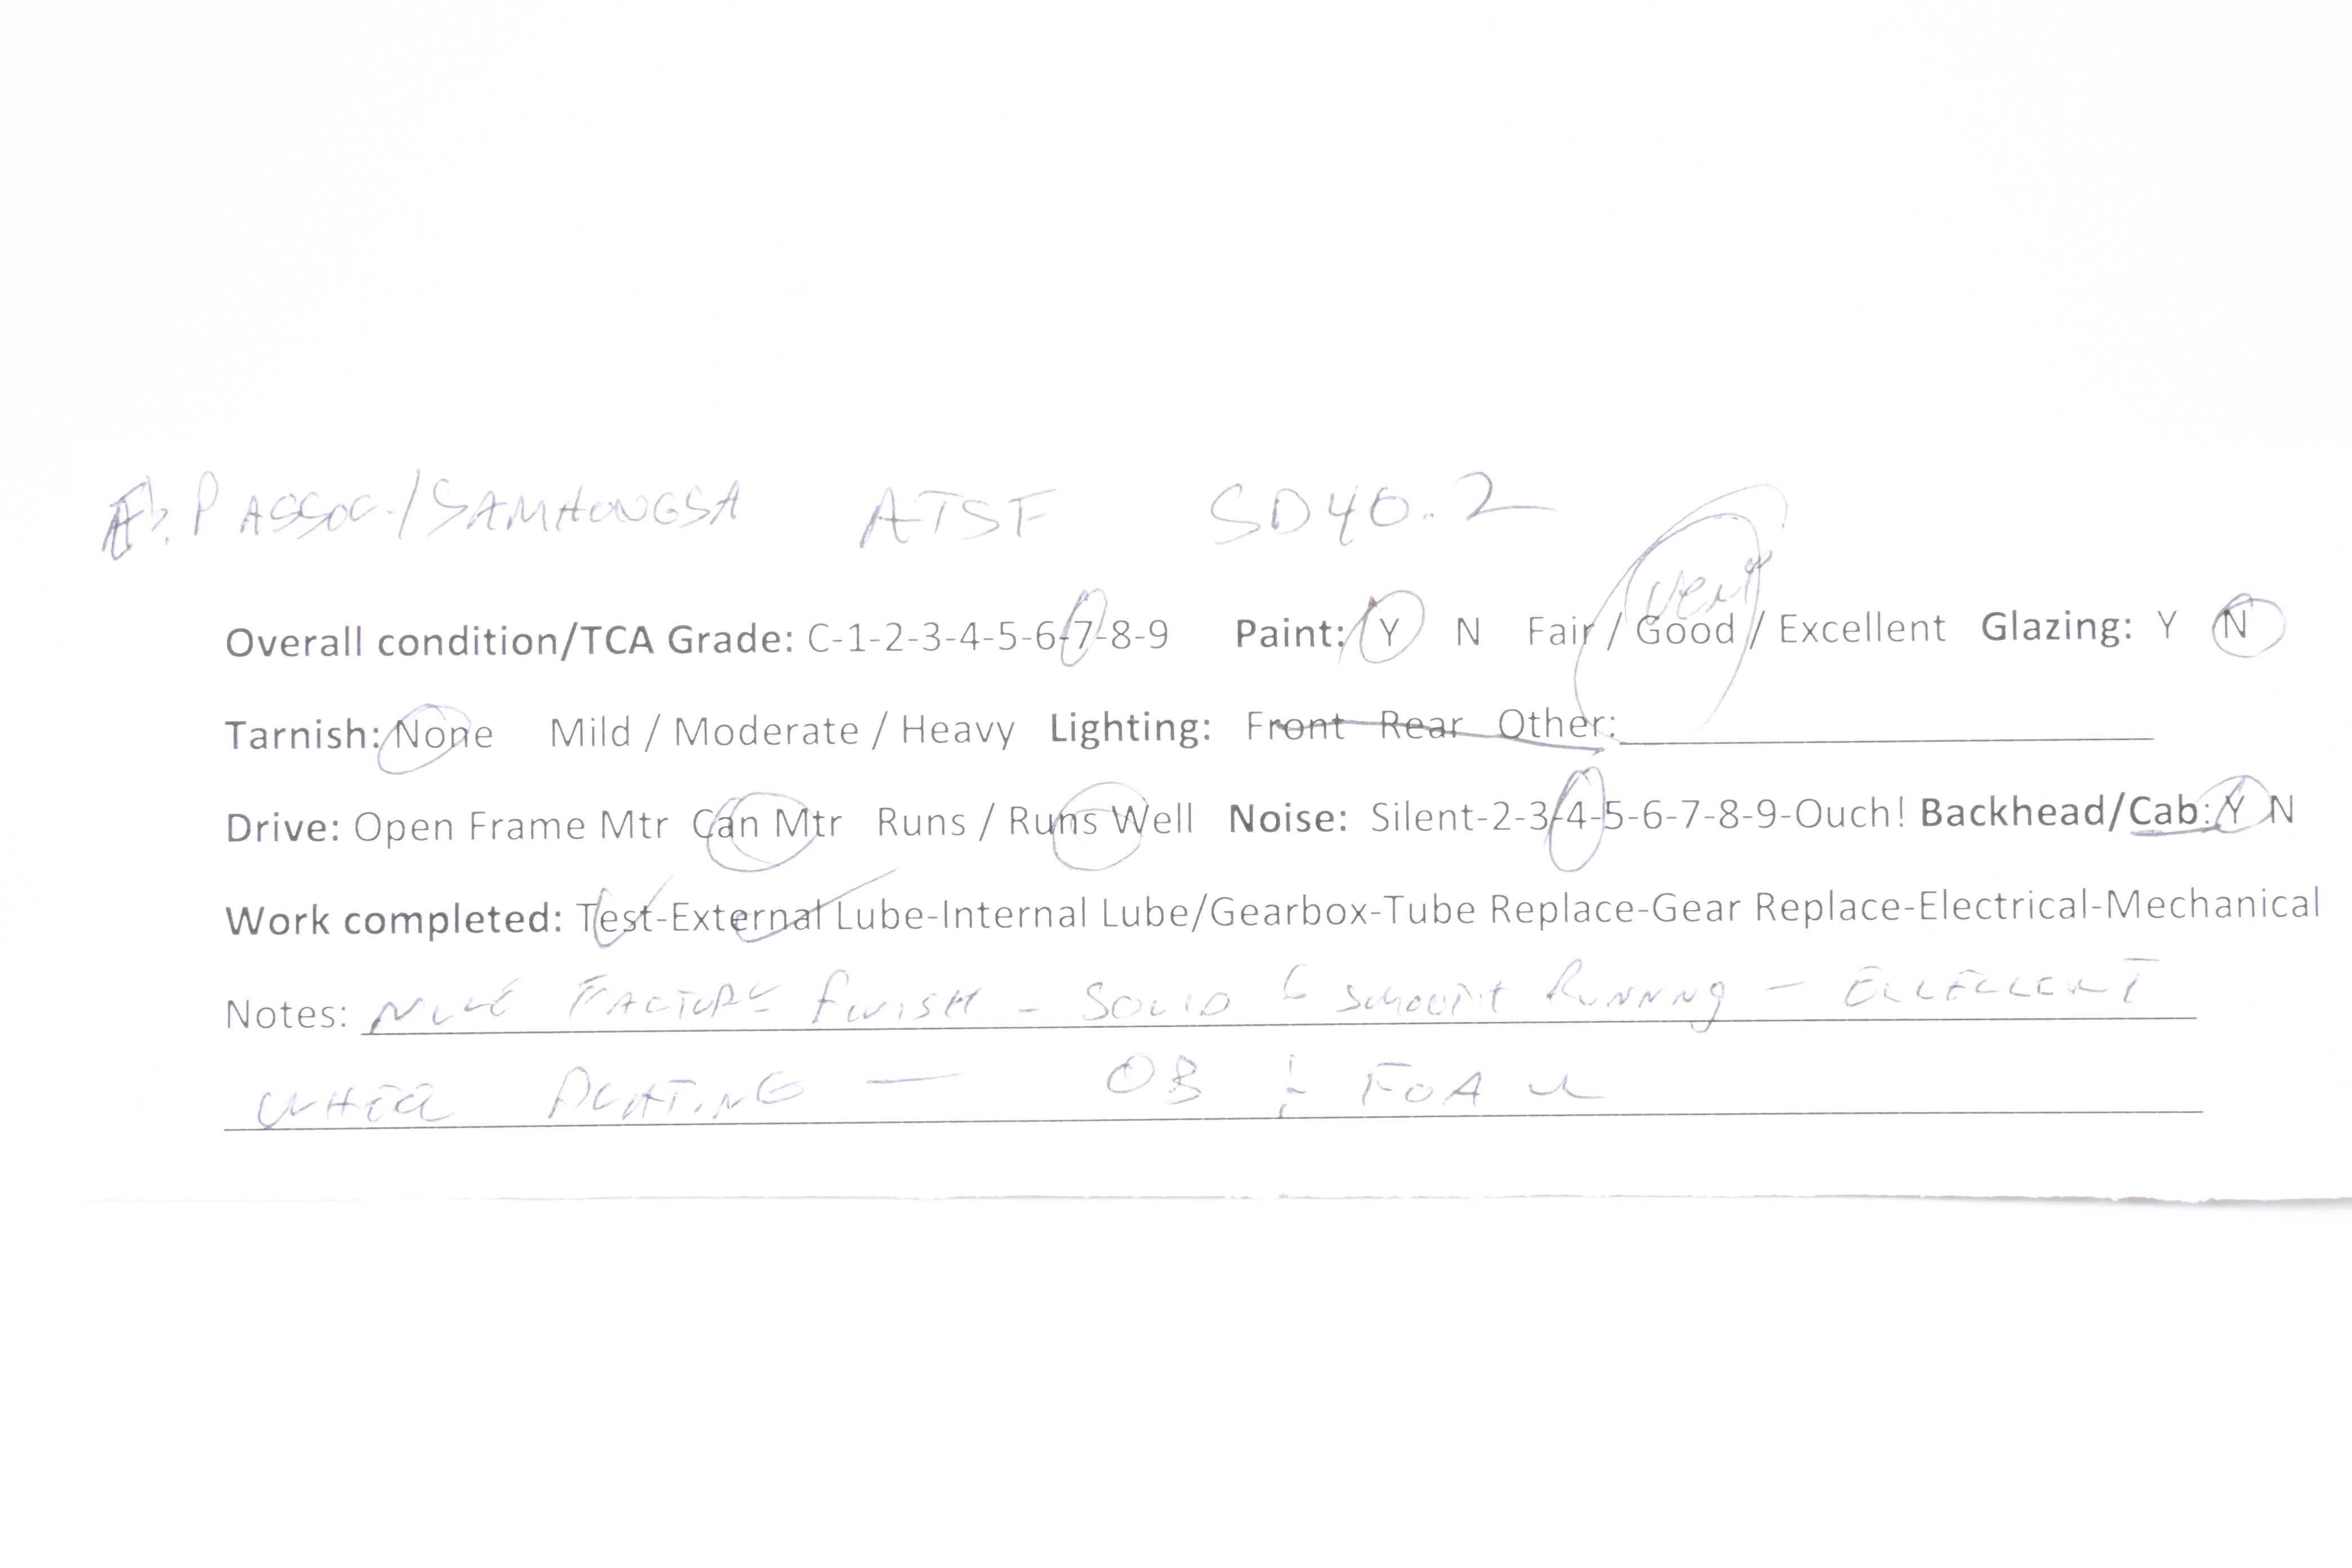 P ASSOC./SAMHONGSA ATSF SD40.2
very
Overall condition/TCA Grade: C-1-2-3-4-5-6-7-8-9 Paint: Y N Fair / Good / Excellent Glazing: Y N
Tarnish: None Mild / Moderate / Heavy Lighting: Front Rear Other:
Drive: Open Frame Mtr Can Mtr Runs / Runs Well Noise: Silent-2-3-4-5-6-7-8-9-Ouch! Backhead/Cab: Y N
Work completed: Test-External Lube-Internal Lube/Gearbox-Tube Replace-Gear Replace-Electrical-Mechanical
Notes: NICE FACTORY FINISH - SOLID & SMOOTH RUNNING - EXCELLENT
WHEEL PLATING — OB & FOAM